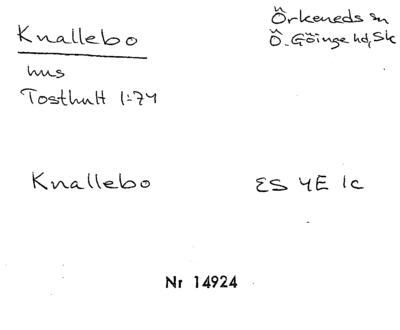 Knallebo
Örkeneds sn
Ö. Göinge hd, Sk
hus
Tosthult 1:74
Knallebo
ES 4E 1c
Nr 14924